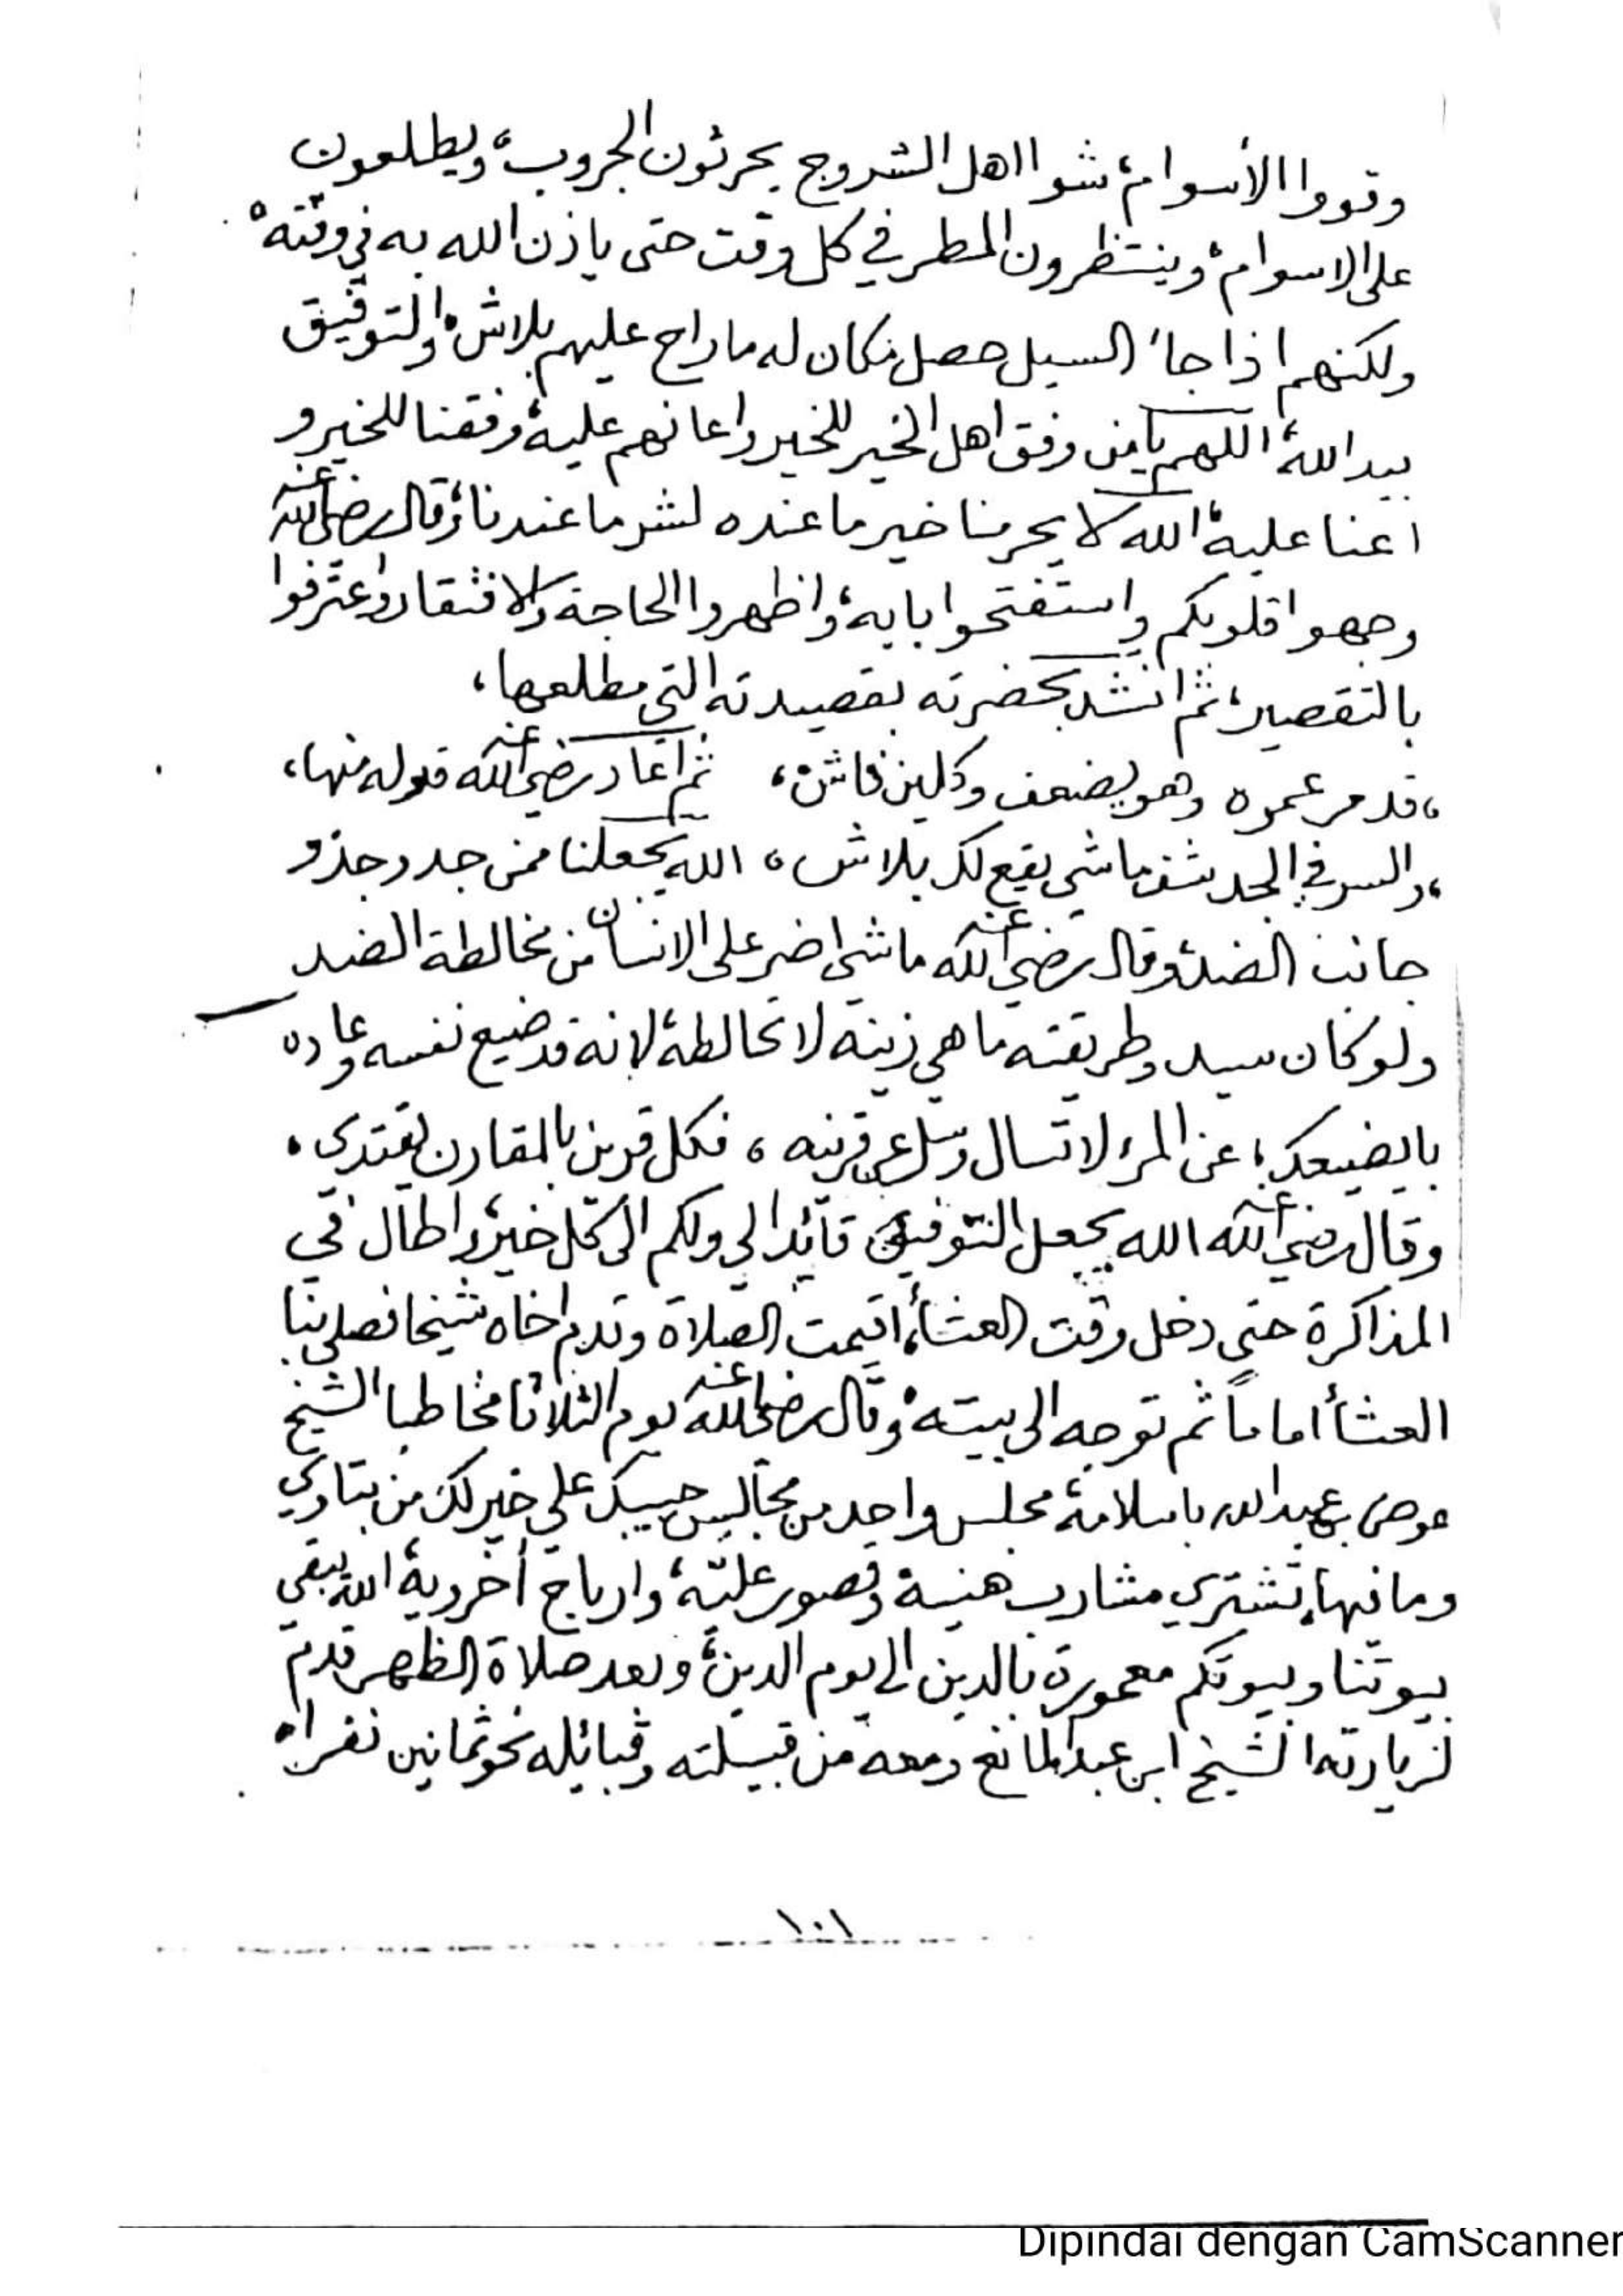 وقووا الأسوام، شوا اهل الشروج يحرثون الجروب، ويطلعون
على الاسوام، وينتظرون المطر في كل وقت حتى ياذن الله به في وقته،
ولكنهم اذا جاء السيل حصل مكان له ما راح عليهم بلاش، والتوفيق
بيد الله، اللهم يا من وفق اهل الخير للخير واعانهم عليه، وفقنا للخير و
اعنا عليه، الله لا يحرمنا خير ما عنده لشر ما عندنا، وقال رضي الله عنه
وجهوا قلوبكم واستفتحوا بابه، واظهروا الحاجة والافتقار واعترفوا
بالتقصير، ثم انشد بحضرته بقصيدته التي مطلعها،
، قد مر عمره وهو يضعف وكلين فاش، ثم اعاد رضي الله عنه قوله منها،
، والسر في الجد شف ماشي يقع لك بلاش، الله يجعلنا ممن جد وجد و
جانب الضد، وقال رضي الله عنه ماشي اضر على الانسان من مخالطة الضد
ولو كان سيد وطريقته ما هي زينه لا تخالطه، لانه قد ضيع نفسه وعاده
بايضيعك، عن المرء لا تسال وسل عن قرينه، فكل قرين بالمقارن يقتدي،
وقال رضي الله عنه الله يجعل التوفيق قائدا لي ولكم الى كل خير، واطال في
المذاكرة حتى دخل وقت العشاء، اقيمت الصلاة وقدم اخاه شيخا فصلى بنا
العشأ اماماً ثم توجه الى بيته، وقال رضي الله عنه يوم الثلاثا مخاطبا الشيخ
عوض بن عبدالله باسلامة مجلس واحد من مجالس حبيبك علي خير لك من بتاوي
وما فيها، تشتري مشارب هنية وقصور عليّة، وارباح أخروية، الله يبقي
بيوتنا وبيوتكم معمورة بالدين الى يوم الدين، وبعد صلاة الظهر قدم
لزيارته الشيخ ابن عبدالمانع ومعه من قبيلته وقبائله نحو ثمانين نفرا،
١٠١
Dipindai dengan CamScanner